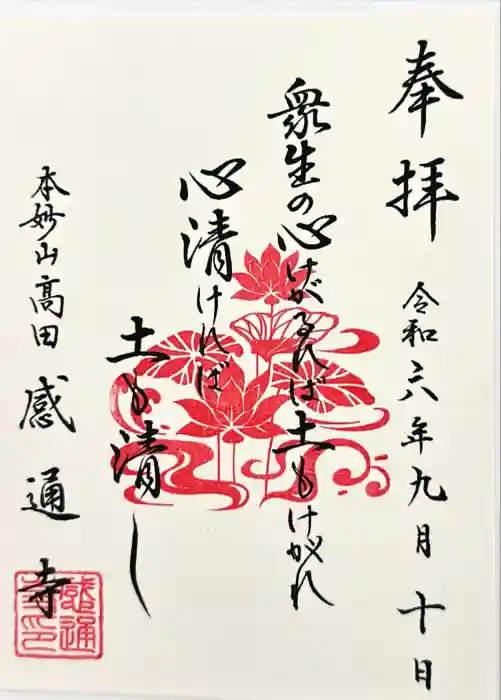 奉拝
令和六年九月十日
衆生の心けがるれば土もけがれ
心清ければ
土も清し
本妙山高田感通寺
感通寺印